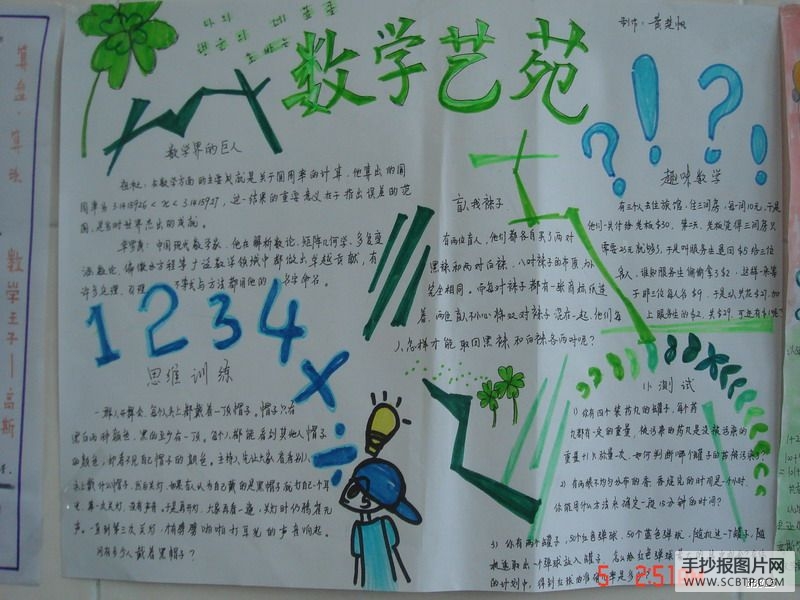 나의
数学艺苑
制作:黄楚帆
数学界的巨人
祖冲之:在数学方面的主要成就是关于圆周率的计算,他算出的圆
周率为3.1415926<π<3.1415927,这一结果的重要意义在于指出误差的范
围,是当时世界杰出的成就。
华罗庚:中国现代数学家,他在解析数论、矩阵几何学、多复变
函数论、偏微分方程等广泛数学领域中都做出卓越贡献,有
许多定理、引理、
不等式与方法都用他的
名字命名。
1 2 3 4 × ÷
思维训练
一群人开舞会,每个人头上都戴着一顶帽子。帽子只有
黑白两种颜色,黑的至少有一顶。每个人都能看到其他人帽子
的颜色,却看不见自己帽子的颜色。主持人先让大家看看别人
头上戴什么帽子,然后关灯,如果有人认为自己戴的是黑帽子就打自己一个耳
光。第一次关灯,没有声音。于是再开灯,大家再看一遍,关灯时仍鸦雀无
声。一直到第三次关灯,才有劈劈啪啪打耳光的声音响起。
问有多少人戴着黑帽子?
盲人找袜子
有两位盲人,他们都各自买了两对
黑袜和两对白袜,八对袜子的布质、大小
完全相同。而每对袜子都有一张商标纸连
着。两位盲人不小心将八对袜子混在一起,他们每
人怎样才能取回黑袜和白袜各两对呢?
? ! ? !
趣味数学
有三个人去住旅馆,住三间房,每一间10元,于是
他们一共付给老板$30。第二天,老板觉得三间房只
需要25元就够了,于是叫服务生退回$5给三位
客人,谁知服务生偷偷拿了$2,这样一来等
于那三位每人各$9,于是三人共花$27,加
上服务生的$2,共$29,可还有$1呢?
小测试
1) 你有四个装药丸的罐子,每个药
丸都有一定的重量,被污染的药丸是没被污染的
重量+1。只称量一次,如何判断哪个罐子的药被污染了?
2) 有两根不均匀分布的香,香烧完的时间是一个小时,
你能用什么方法来确定一段15分钟的时间?
3) 你有两个罐子,50个红色弹球,50个蓝色弹球,随机选一个罐子,随
机选取出一个弹球放入罐子,怎么给红色弹球
的计划中,得到红球的准确率是多少?
算盘·算珠
数学王子——高斯
手抄报图片网
WWW.SCBTP.COM